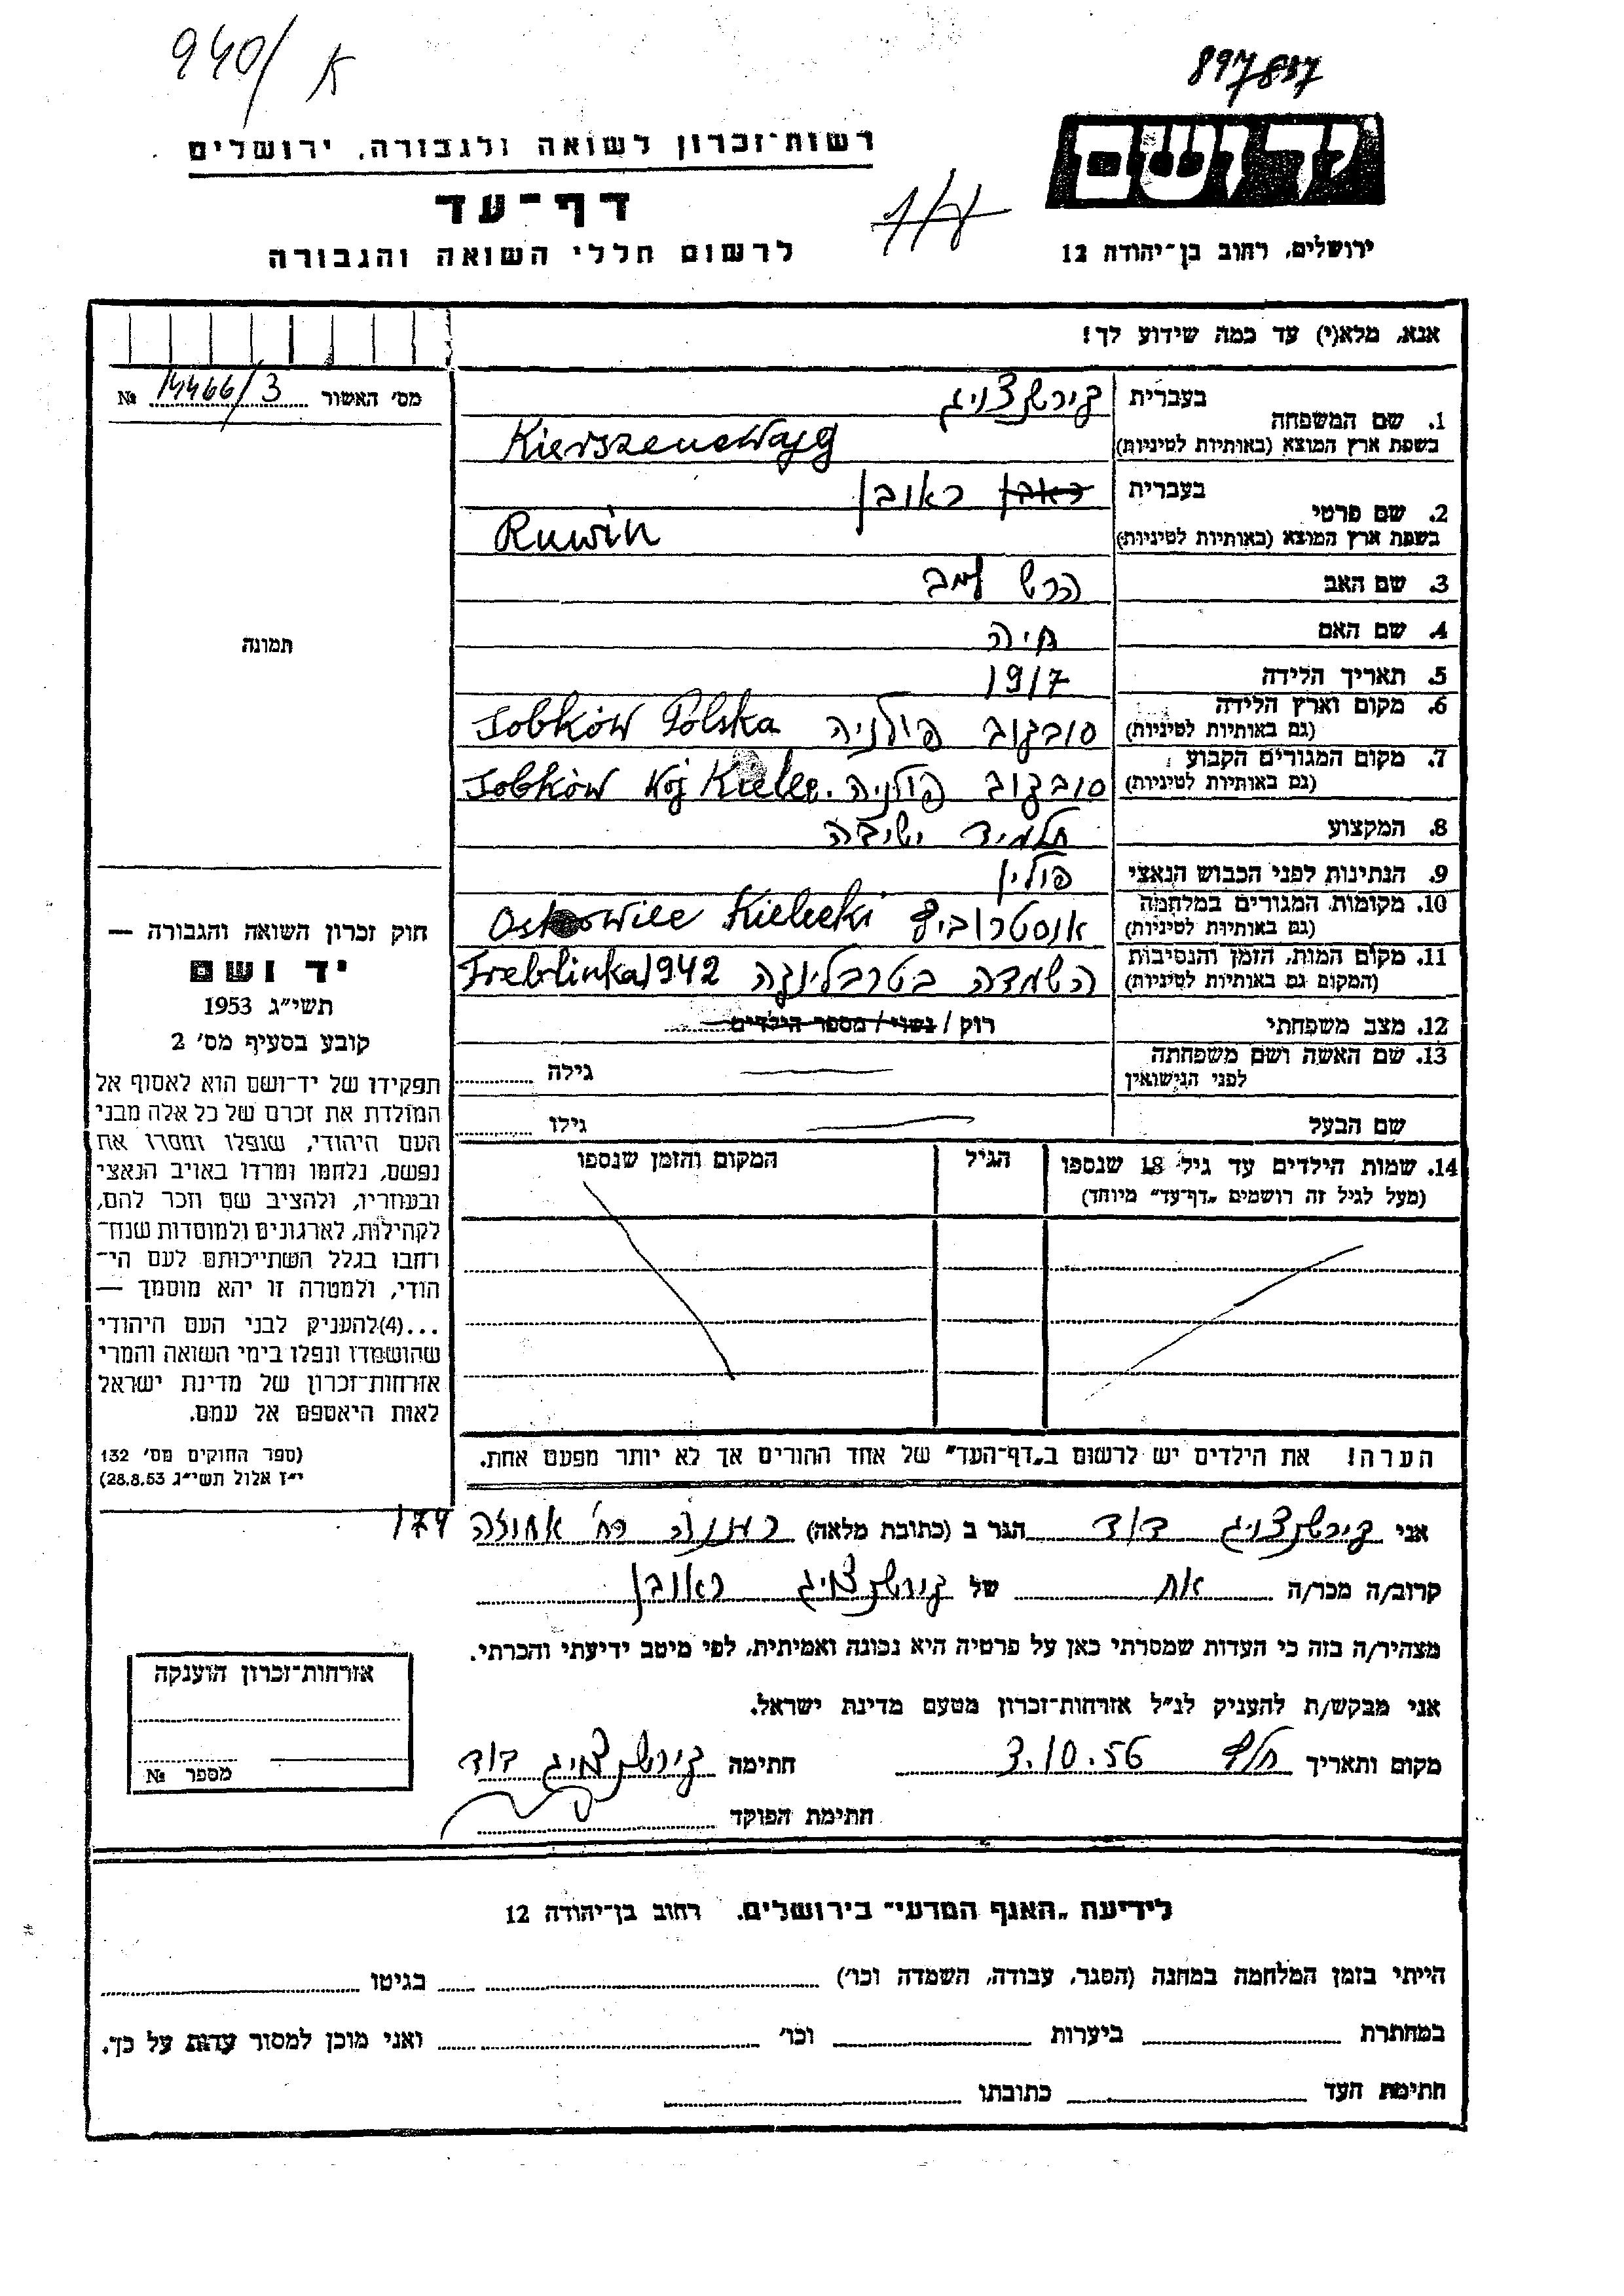 940/ א
897837
יד ושם
רשות־זכרון לשואה ולגבורה, ירושלים
דף־עד
לרשום חללי השואה והגבורה
ירושלים, רחוב בן־יהודה 12
אנא, מלא(י) עד כמה שידוע לך!
מס' האשור 14466/3 №
1. שם המשפחה
בעברית קירשנצויג
בשפת ארץ המוצא (באותיות לטיניות) Kierszencwajg
2. שם פרטי
בעברית ראובן ראובן
בשפת ארץ המוצא (באותיות לטיניות) Ruwin
3. שם האב הרש
4. שם האם חיה
5. תאריך הלידה 1917
6. מקום וארץ הלידה
(גם באותיות לטיניות) סובקוב פולניה Sobków Polska
7. מקום המגורים הקבוע
(גם באותיות לטיניות) סובקוב פולניה. Sobków Woj Kielec
8. המקצוע תלמיד ישיבה
9. הנתינות לפני הכבוש הנאצי פולין
10. מקומות המגורים במלחמה
(גם באותיות לטיניות) אוסטרוביץ Ostrowiec Kielecki
11. מקום המות, הזמן והנסיבות
(המקום גם באותיות לטיניות) השמדה בטרבלינקה Treblinka 1942
12. מצב משפחתי רוק / נשוי / מספר הילדים
13. שם האשה ושם משפחתה
לפני הנישואין גילה
שם הבעל גילו
14. שמות הילדים עד גיל 18 שנספו
(מעל לגיל זה רושמים „דף־עד" מיוחד)
הגיל
המקום והזמן שנספו
תמונה
חוק זכרון השואה והגבורה —
יד ושם
תשי"ג 1953
קובע בסעיף מס' 2
תפקידו של יד־ושם הוא לאסוף אל
המולדת את זכרם של כל אלה מבני
העם היהודי, שנפלו ומסרו את
נפשם, נלחמו ומרדו באויב הנאצי
ובעוזריו, ולהציב שם וזכר להם,
לקהילות, לארגונים ולמוסדות שנח־
רחבו בגלל השתייכותם לעם הי־
הודי, ולמטרה זו יהא מוסמך —
...(4) להעניק לבני העם היהודי
שהושמדו ונפלו בימי השואה והמרי
אזרחות־זכרון של מדינת ישראל
לאות היאספם אל עמם.
(ספר החוקים מס' 132
י"ז אלול תשי"ג 28.8.53)
הערה! את הילדים יש לרשום ב„דף־העד" של אחד ההורים אך לא יותר מפעם אחת.
אני קירשנצויג דוד הגר ב (כתובת מלאה) רעננה רח' אחוזה 174
קרוב/ה מכר/ה אח של קירשנצויג ראובן
מצהיר/ה בזה כי העדות שמסרתי כאן על פרטיה היא נכונה ואמיתית, לפי מיטב ידיעתי והכרתי.
אני מבקש/ת להעניק לנ"ל אזרחות־זכרון מטעם מדינת ישראל.
מקום ותאריך 3.10.56 חתימה קירשנצויג דוד
חתימת הפוקד
אזרחות־זכרון הוענקה
מספר №
לידיעת „האגף המדעי" בירושלים, רחוב בן־יהודה 12
הייתי בזמן המלחמה במחנה (הסגר, עבודה, השמדה וכו') בגיטו
במחתרת ביערות וכו' ואני מוכן למסור עדות על כך.
חתימת העד כתובתו